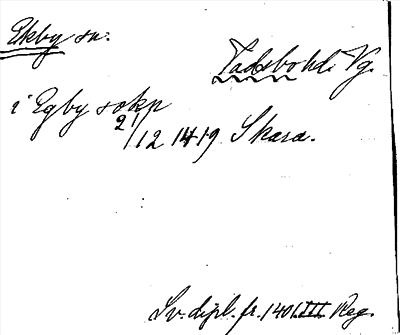 Ekby sn.
Vadsbo hd. Vg.
i Egby sokp
21/12 1419 Skara.
Sv. dipl. fr. 1401 III Reg.